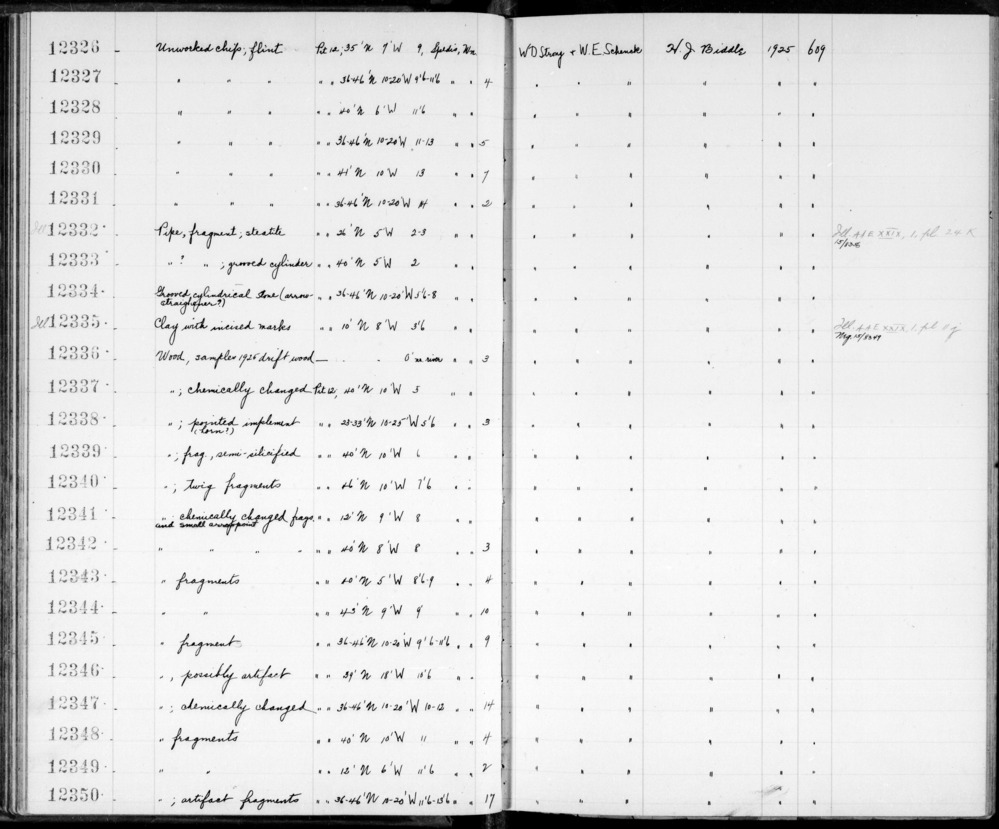 12326 Unworked chips, flint Pit 12, 35' N 9' W 9, Spedis, Wn W D Strong + W. E. Schenck H. J. Biddle 1925 609
12327 " " " " " 36-46' N 10-20 W 9'6-11'6 " " 4 " " " " " "
12328 " " " " " 40' N 6' W 11'6 " " " " " " " "
12329 " " " " " 36-46' N 10-20' W 11-13 " " 5 " " " " " "
12330 " " " " " 41' N 10 W 13 " " 7 " " " " " "
12331 " " " " " 36-46' N 10-20 W 14 " " 2 " " " " " "
Ill 12332 Pipe, fragment; steatite " " 26' N 5 W 2-3 " " " " " " " " Ill AAE XXIX, 1, pl 24 k
12333 " ? " ; grooved cylinder " " 40' N 5 W 2 " " " " " " " "
12334 Grooved cylindrical stone (arrow- " " 36-46' N 10-20' W 5'6-8 " " " " " " " "
straightener?)
Ill 12335 Clay with incised marks " " 10' N 8' W 3'6 " " " " " " " " Ill AAE XXIX, 1, pl 11 g
Neg. 15/5349
12336 Wood, samples 1925 drift wood — - - 0' river " " 3 " " " " " "
12337 " ; chemically changed Pit 12, 40' N 10' W 5 " " " " " " " "
12338 " ; pointed implement " " 23-33' N 10-25' W 5'6 " " 3 " " " " " "
12339 " ; frag., semi-silicified " " 40' N 10' W 6 " " " " " " " "
12340 " ; twig fragments " " 46' N 10' W 7'6 " " " " " " " "
12341 " ; chemically changed frags. " " 12' N 9' W 8 " " " " " " " "
and small arrowpoint
12342 " " " " " " 40' N 8' W 8 " " 3 " " " " " "
12343 " fragments " " 40' N 5' W 8'6-9 " " 4 " " " " " "
12344 " " " " 43' N 9' W 9 " " 10 " " " " " "
12345 " fragment " " 36-46' N 10-20' W 9'6-11'6 " " 9 " " " " " "
12346 " , possibly artifact " " 39' N 18' W 10'6 " " " " " " " "
12347 " ; chemically changed " " 36-46' N 10-20' W 10-12 " " 14 " " " " " "
12348 " fragments " " 40' N 10' W 11 " " 4 " " " " " "
12349 " " " " 12' N 6' W 11'6 " " 2 " " " " " "
12350 " ; artifact fragments " " 36-46' N 10-20' W 11'6-13'6 " " 17 " " " " " "